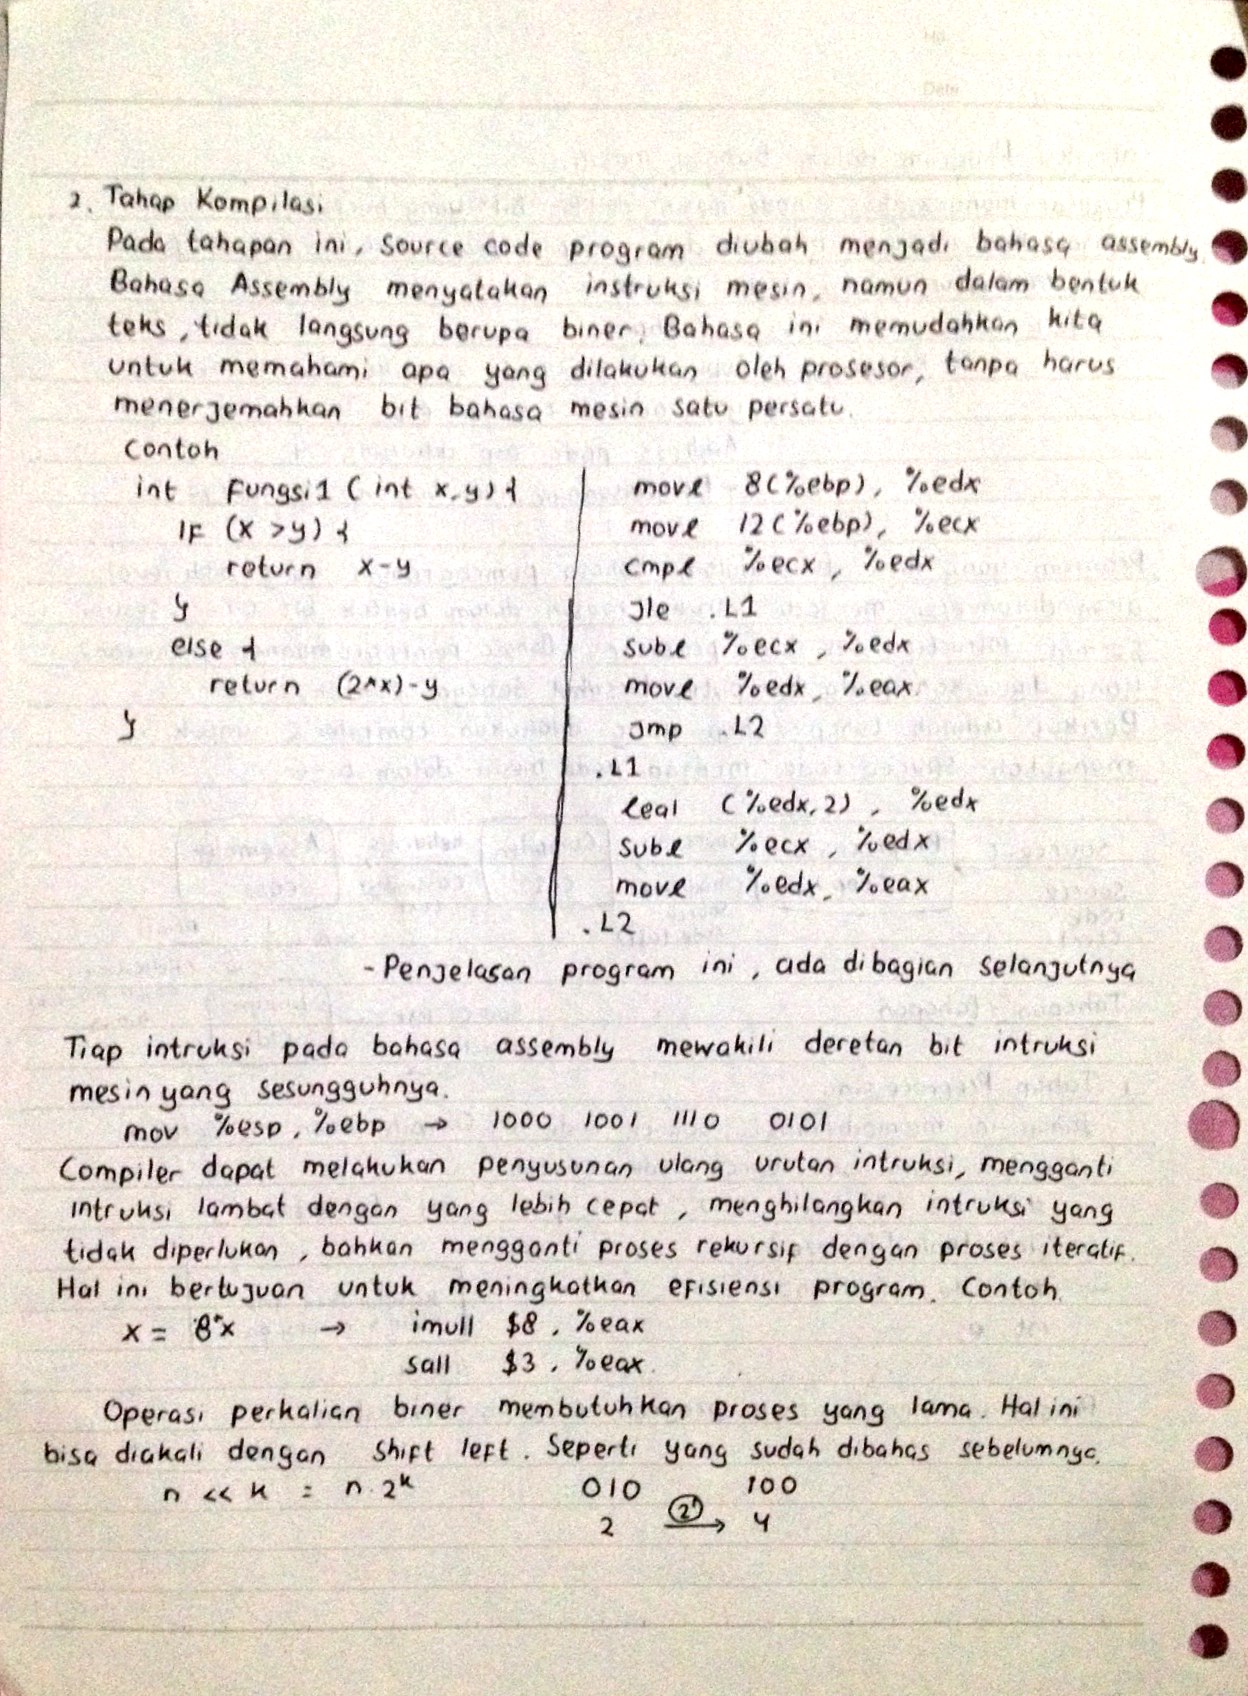 2. Tahap Kompilasi
Pada tahapan ini, source code program diubah menjadi bahasa assembly.
Bahasa Assembly menyatakan instruksi mesin, namun dalam bentuk
teks, tidak langsung berupa biner. Bahasa ini memudahkan kita
untuk memahami apa yang dilakukan oleh prosesor, tanpa harus
menerjemahkan bit bahasa mesin satu persatu.
Contoh
int Fungsi1 (int x,y) {
IF (x >y) {
return x-y
}
else {
return (2*x)-y
}
movl 8(%ebp), %edx
movl 12(%ebp), %ecx
cmpl %ecx, %edx
jle .L1
subl %ecx, %edx
movl %edx, %eax
jmp .L2
.L1
leal (%edx,2), %edx
subl %ecx, %edx
movl %edx, %eax
.L2
- Penjelasan program ini, ada dibagian selanjutnya
Tiap intruksi pada bahasa assembly mewakili deretan bit intruksi
mesin yang sesungguhnya.
mov %esp, %ebp → 1000 1001 1110 0101
Compiler dapat melakukan penyusunan ulang urutan intruksi, mengganti
intruksi lambat dengan yang lebih cepat, menghilangkan intruksi yang
tidak diperlukan, bahkan mengganti proses rekursif dengan proses iteratif.
Hal ini bertujuan untuk meningkatkan efisiensi program. Contoh
x = 8*x → imull $8, %eax
sall $3, %eax.
Operasi perkalian biner membutuhkan proses yang lama. Hal ini
bisa diakali dengan shift left. Seperti yang sudah dibahas sebelumnya.
n << k = n.2ᵏ 010 100
2 2¹→ 4